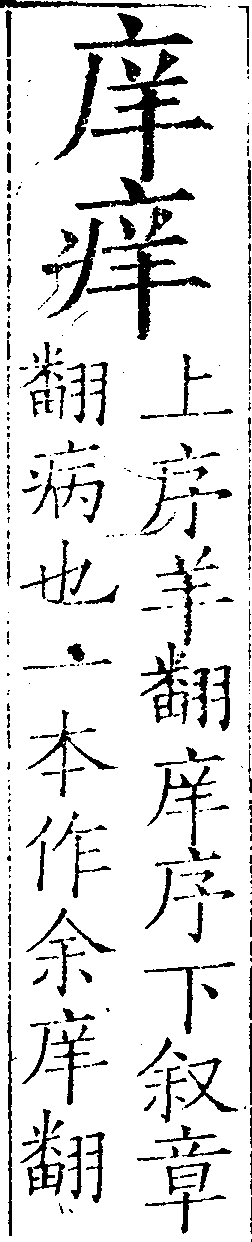 庠痒
上序羊翻庠序下叙章
翻病也一本作余庠翻